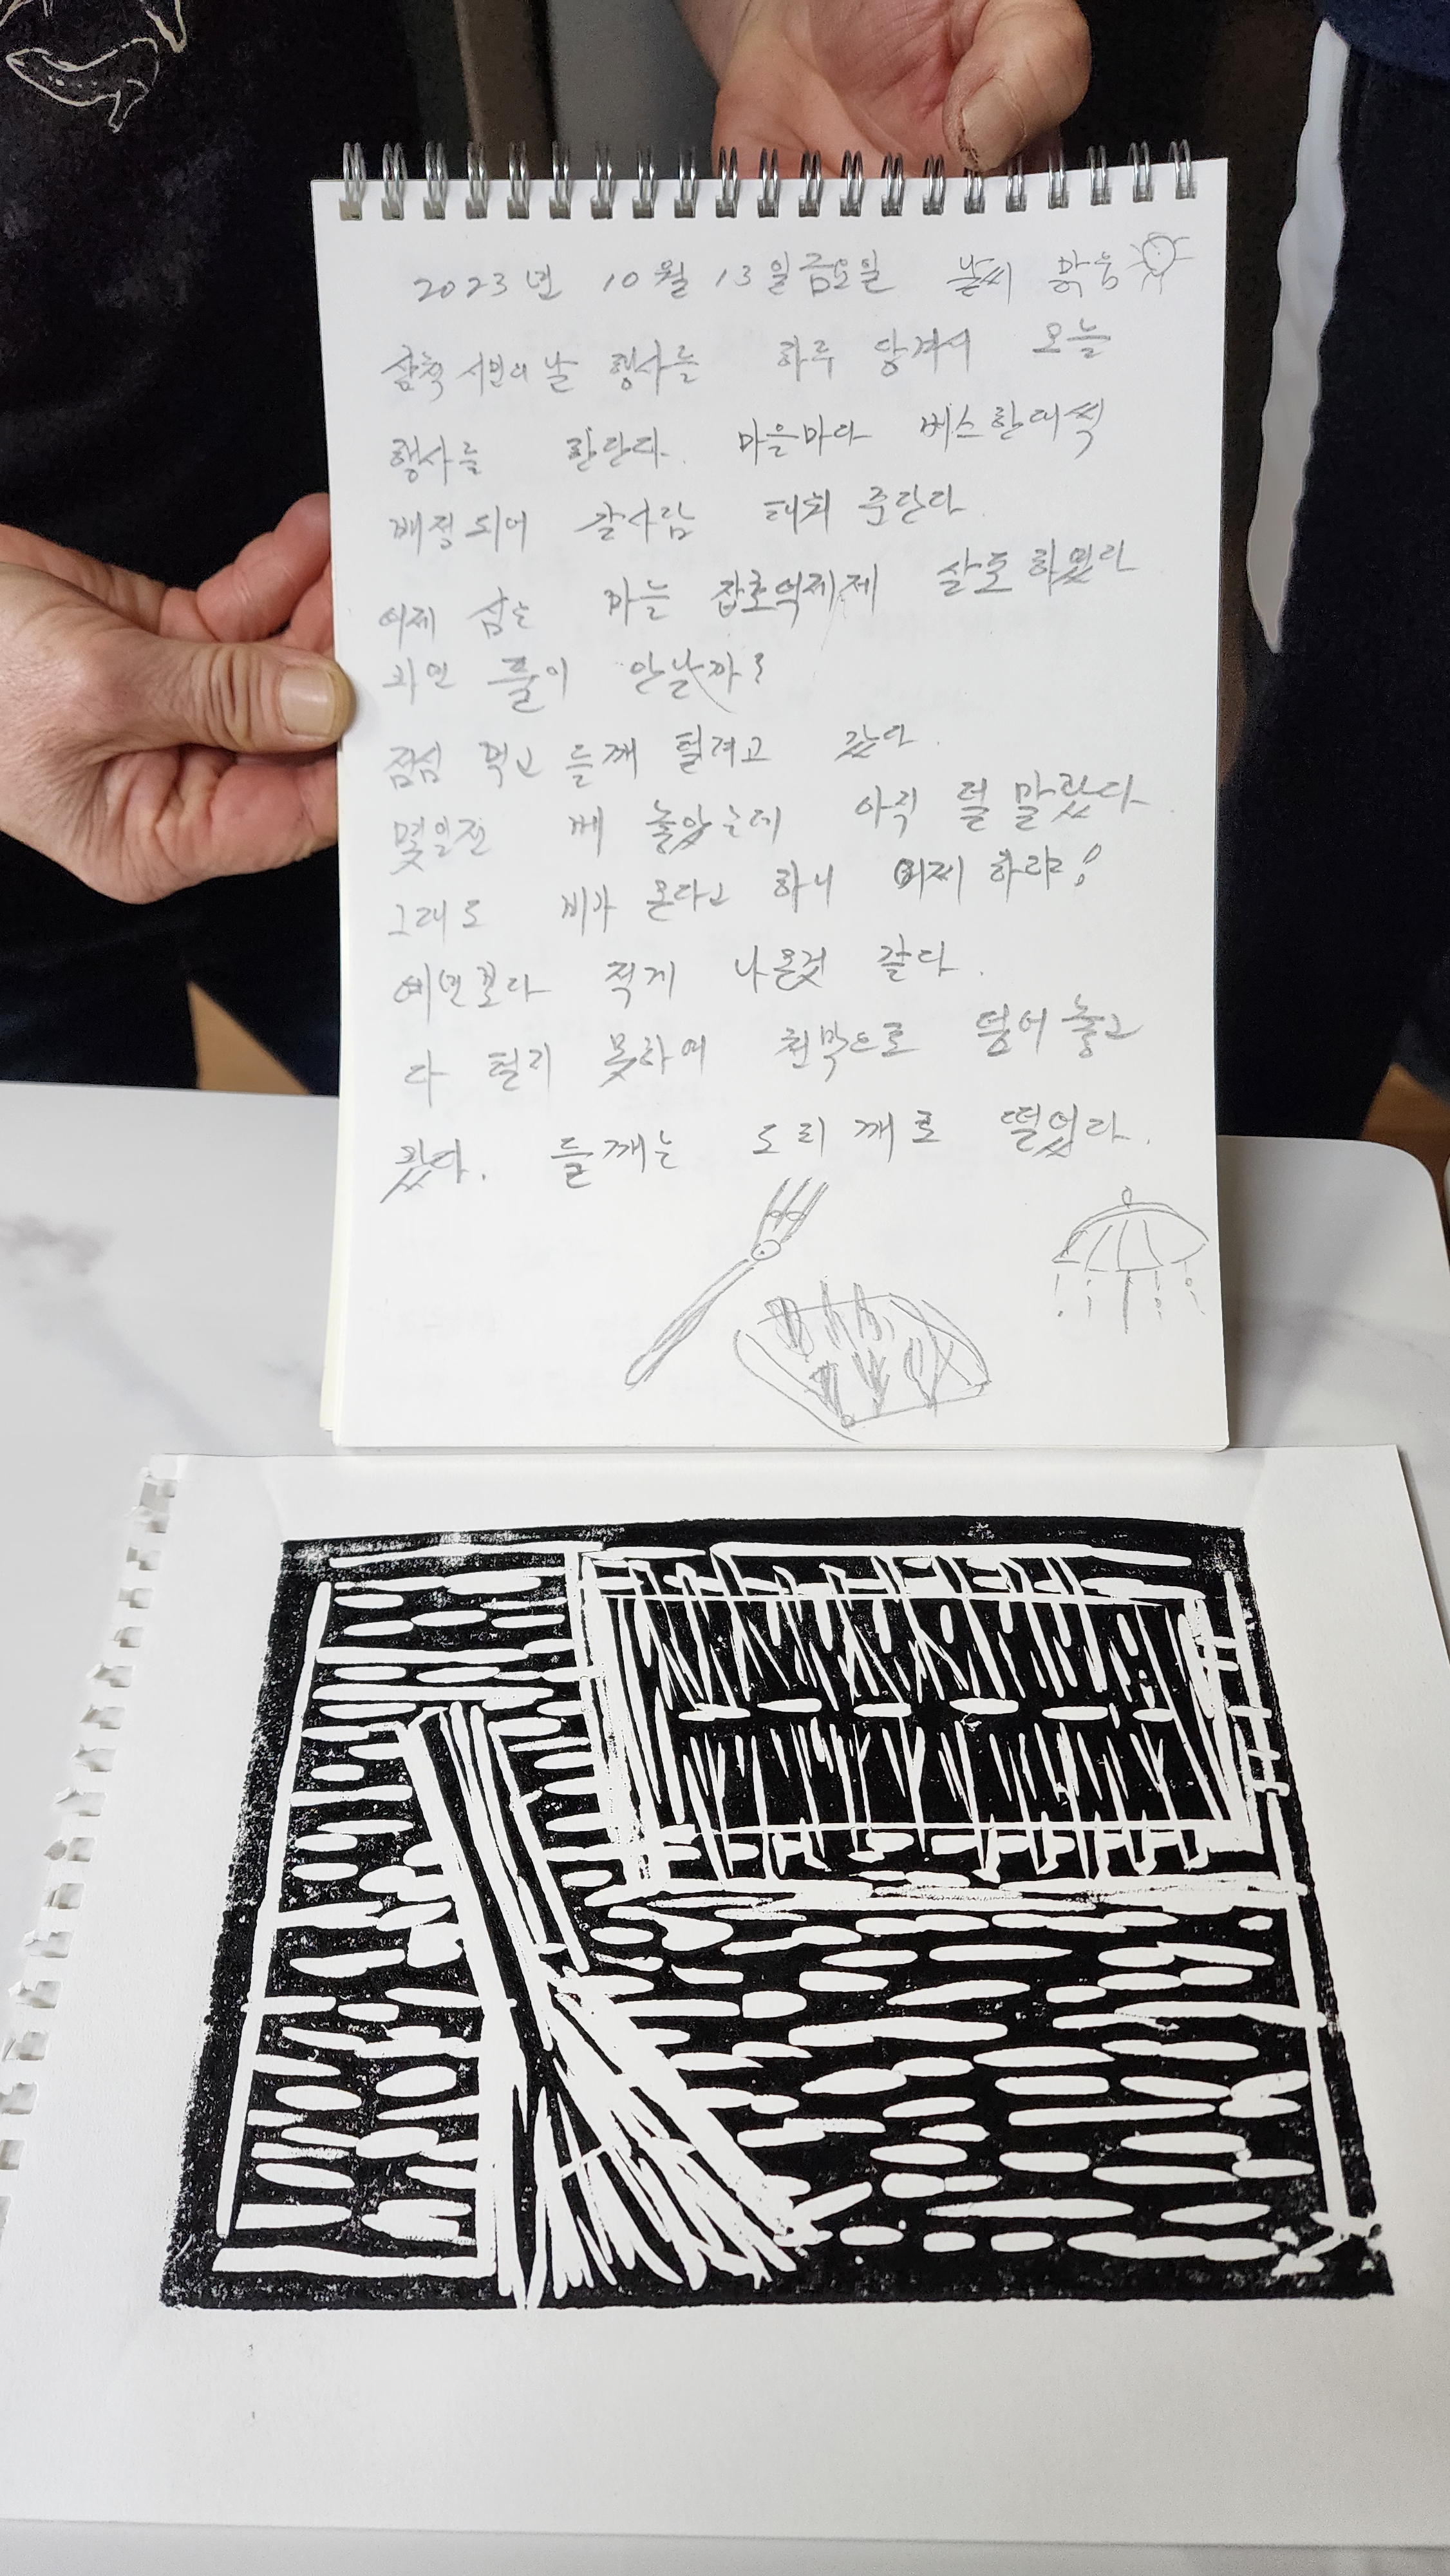 2023년 10월 13일 금요일 날씨 맑음
삼척 시민의 날 행사를 하루 당겨서 오늘
행사를 한단다. 마을마다 버스 한대씩
배정되어 갈사람 태워 준단다
어제 심은 마늘 잡초억제제 살포 하였다
과연 풀이 안날까?
점심 먹고 들깨 털려고 갔다.
몇일전 베 놓았는데 아직 덜 말랐다.
그래도 비가 온다고 하니 어찌 하랴!
예년보다 적게 나온것 같다.
다 털지 못하여 천막으로 덮어 놓고
왔다. 들깨는 도리깨로 떨었다.